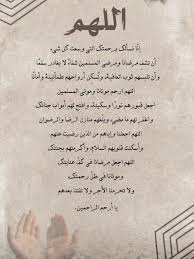 اللهم
إنّا نسألك برحمتك التي وسعت كل شيء
أن تشف مرضانا ومرضى المسلمين شفاءً لا يغادر سقمًا
وأن تلبسهم ثوب العافية، وتُسكن أرواحهم طمأنينة وأمانًا
اللهم ارحم موتانا وموتى المسلمين
واجعل قبورهم نورًا وسكينة، وافتح لهم أبواب جنانك
واغفر لهم ما مضى، وبلّغهم منازل الرضا والرضوان
اللهم اجعلنا وإياهم من الذين رضيت عنهم
وأسكنت قلوبهم السلام، وأكرمتهم بجنتك
اللهم اجعل مرضانا في كنف عنايتك
وموتانا في ظل رحمتك
ولا تحرمنا الأجر ولا تفتنا بعدهم
يا أرحم الراحمين.